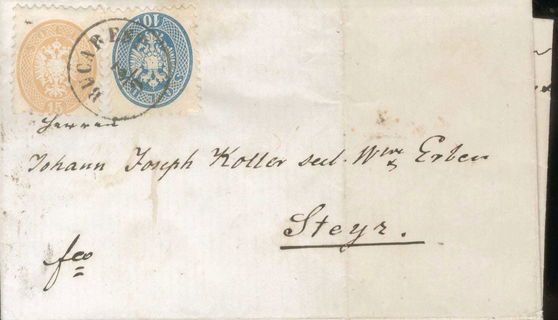 15
10
BUCAREST
Herren
Johann Joseph Koller seel. Wwe & Erben
Steyr.
fco